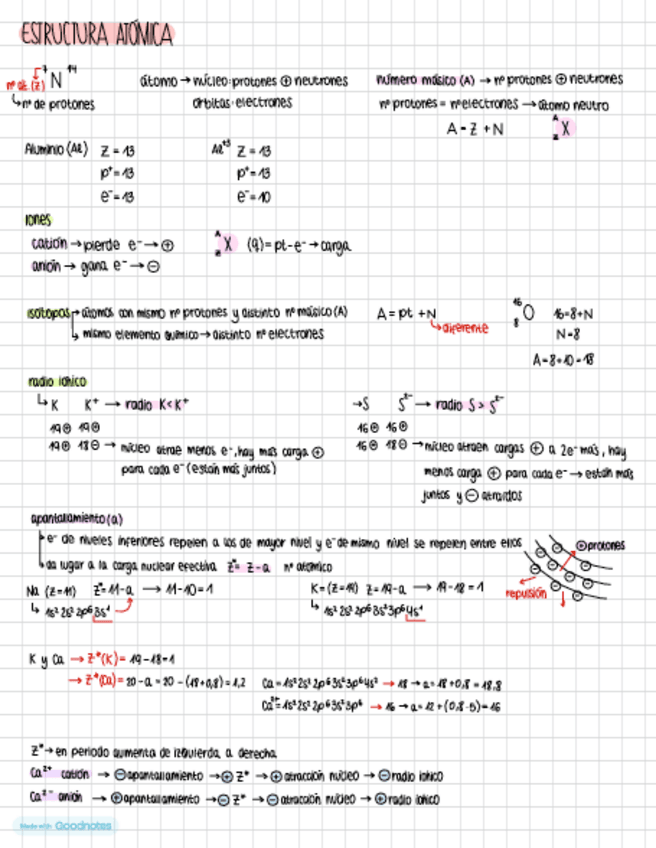 ESTRUCTURA ATÓMICA
7 N 14
nº at. (Z)
↳nº de protones
átomo → núcleo: protones ⊕ neutrones
órbitas: electrones
número másico (A) → nº protones ⊕ neutrones
nº protones = nº electrones → átomo neutro
A = Z + N
A Z X
Aluminio (Al) Z = 13
p⁺ = 13
e⁻ = 13
Al⁺³ Z = 13
p⁺ = 13
e⁻ = 10
iones
catión → pierde e⁻ → ⊕
anión → gana e⁻ → ⊖
A Z X (q) = pt - e⁻ → carga
isótopos → átomos con mismo nº protones y distinto nº másico (A)
↳ mismo elemento químico → distinto nº electrones
A = pt + N
↳ diferente
16 8 O 16 = 8 + N
N = 8
A = 8 + 10 = 18
radio iónico
↳ K K⁺ → radio K < K⁺
19⊕ 19⊕
19⊖ 18⊖ → núcleo atrae menos e⁻, hay más carga ⊕
para cada e⁻ (están más juntos)
→ S S²⁻ → radio S > S²⁻
16⊕ 16⊕
16⊖ 18⊖ → núcleo atraen cargas ⊕ a 2e⁻ más, hay
menos carga ⊕ para cada e⁻ → están más
juntos y ⊖ atraídos
apantallamiento (a)
e⁻ de niveles inferiores repelen a los de mayor nivel y e⁻ de mismo nivel se repelen entre ellos
da lugar a la carga nuclear efectiva Z* = Z - a nº atómico
⊕ protones
repulsión
Na (Z = 11) Z* = 11 - a → 11 - 10 = 1
↳ 1s² 2s² 2p⁶ 3s¹
K = (Z = 19) Z = 19 - a → 19 - 18 = 1
↳ 1s² 2s² 2p⁶ 3s² 3p⁶ 4s¹
K y Ca → Z*(K) = 19 - 18 = 1
→ Z*(Ca) = 20 - a = 20 - (18 + 0,8) = 1,2
Ca = 1s² 2s² 2p⁶ 3s² 3p⁶ 4s² → 18 → a = 18 + 0,8 = 18,8
Ca²⁺ = 1s² 2s² 2p⁶ 3s² 3p⁶ → 16 → a = 12 + (0,8·5) = 16
Z* → en periodo aumenta de izquierda a derecha
Ca²⁺ catión → ⊖ apantallamiento → ⊕ Z* → ⊕ atracción núcleo → ⊖ radio iónico
Ca²⁻ anión → ⊕ apantallamiento → ⊖ Z* → ⊖ atracción núcleo → ⊕ radio iónico
Made with Goodnotes